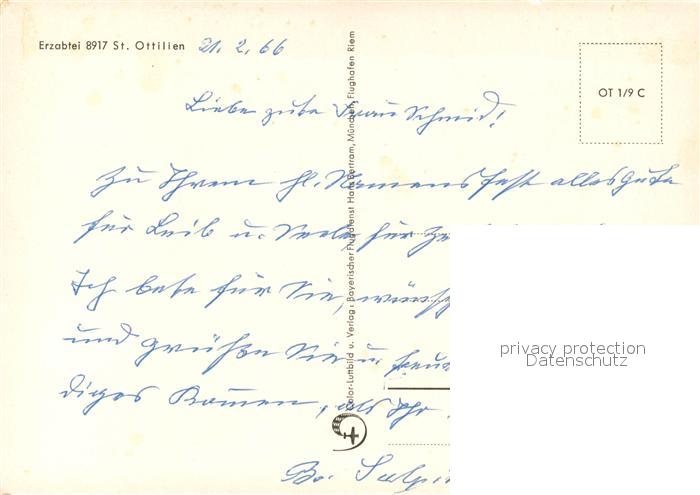 Erzabtei 8917 St. Ottilien 21. 2. 66
OT 1/9 C
Liebe gute Frau Schmid!
Zu Ihrem hl. Namensfest alles Gute
für Leib u. Seele, für
Ich bete für Sie,
und grüße Sie u.
diges Kommen, als Ihr
Br.
Color-Luftbild u. Verlag: Bayerischer Flugdienst Hans Bertram, München, Flughafen Riem
privacy protection
Datenschutz